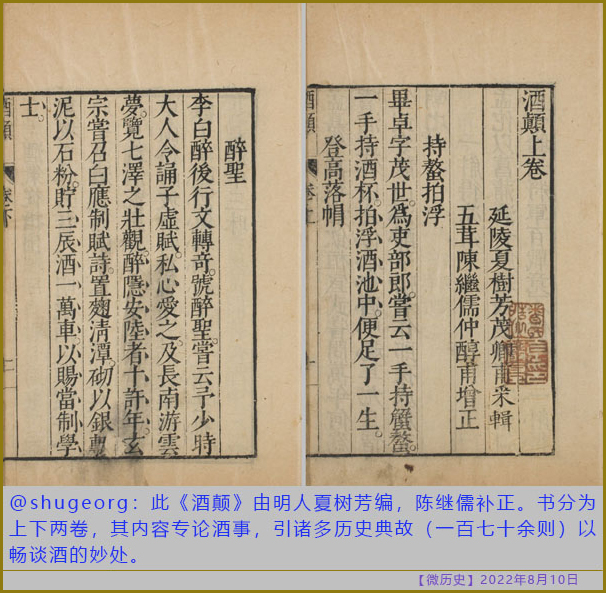 酒顛上卷
延陵夏樹芳茂卿甫采輯
五茸陳繼儒仲醇甫增正
持螯拍浮
畢卓字茂世。爲吏部郎。嘗云一手持蟹螯。
一手持酒杯。拍浮酒池中。便足了一生。
登高落帽
酒顛 卷上
醉聖
李白醉後行文轉奇。號醉聖。嘗云予少時
大人令誦子虛賦。私心愛之。及長南游雲
夢。覽七澤之壯觀。醉隱安陸者十許年。玄
宗嘗召白應制賦詩。置麴清潭。砌以銀甎
泥以石粉。貯三辰酒一萬車。以賜當制學
士。
酒顛 卷下
@shugeorg：此《酒颠》由明人夏树芳编，陈继儒补正。书分为
上下两卷，其内容专论酒事，引诸多历史典故（一百七十余则）以
畅谈酒的妙处。
【微历史】2022年8月10日